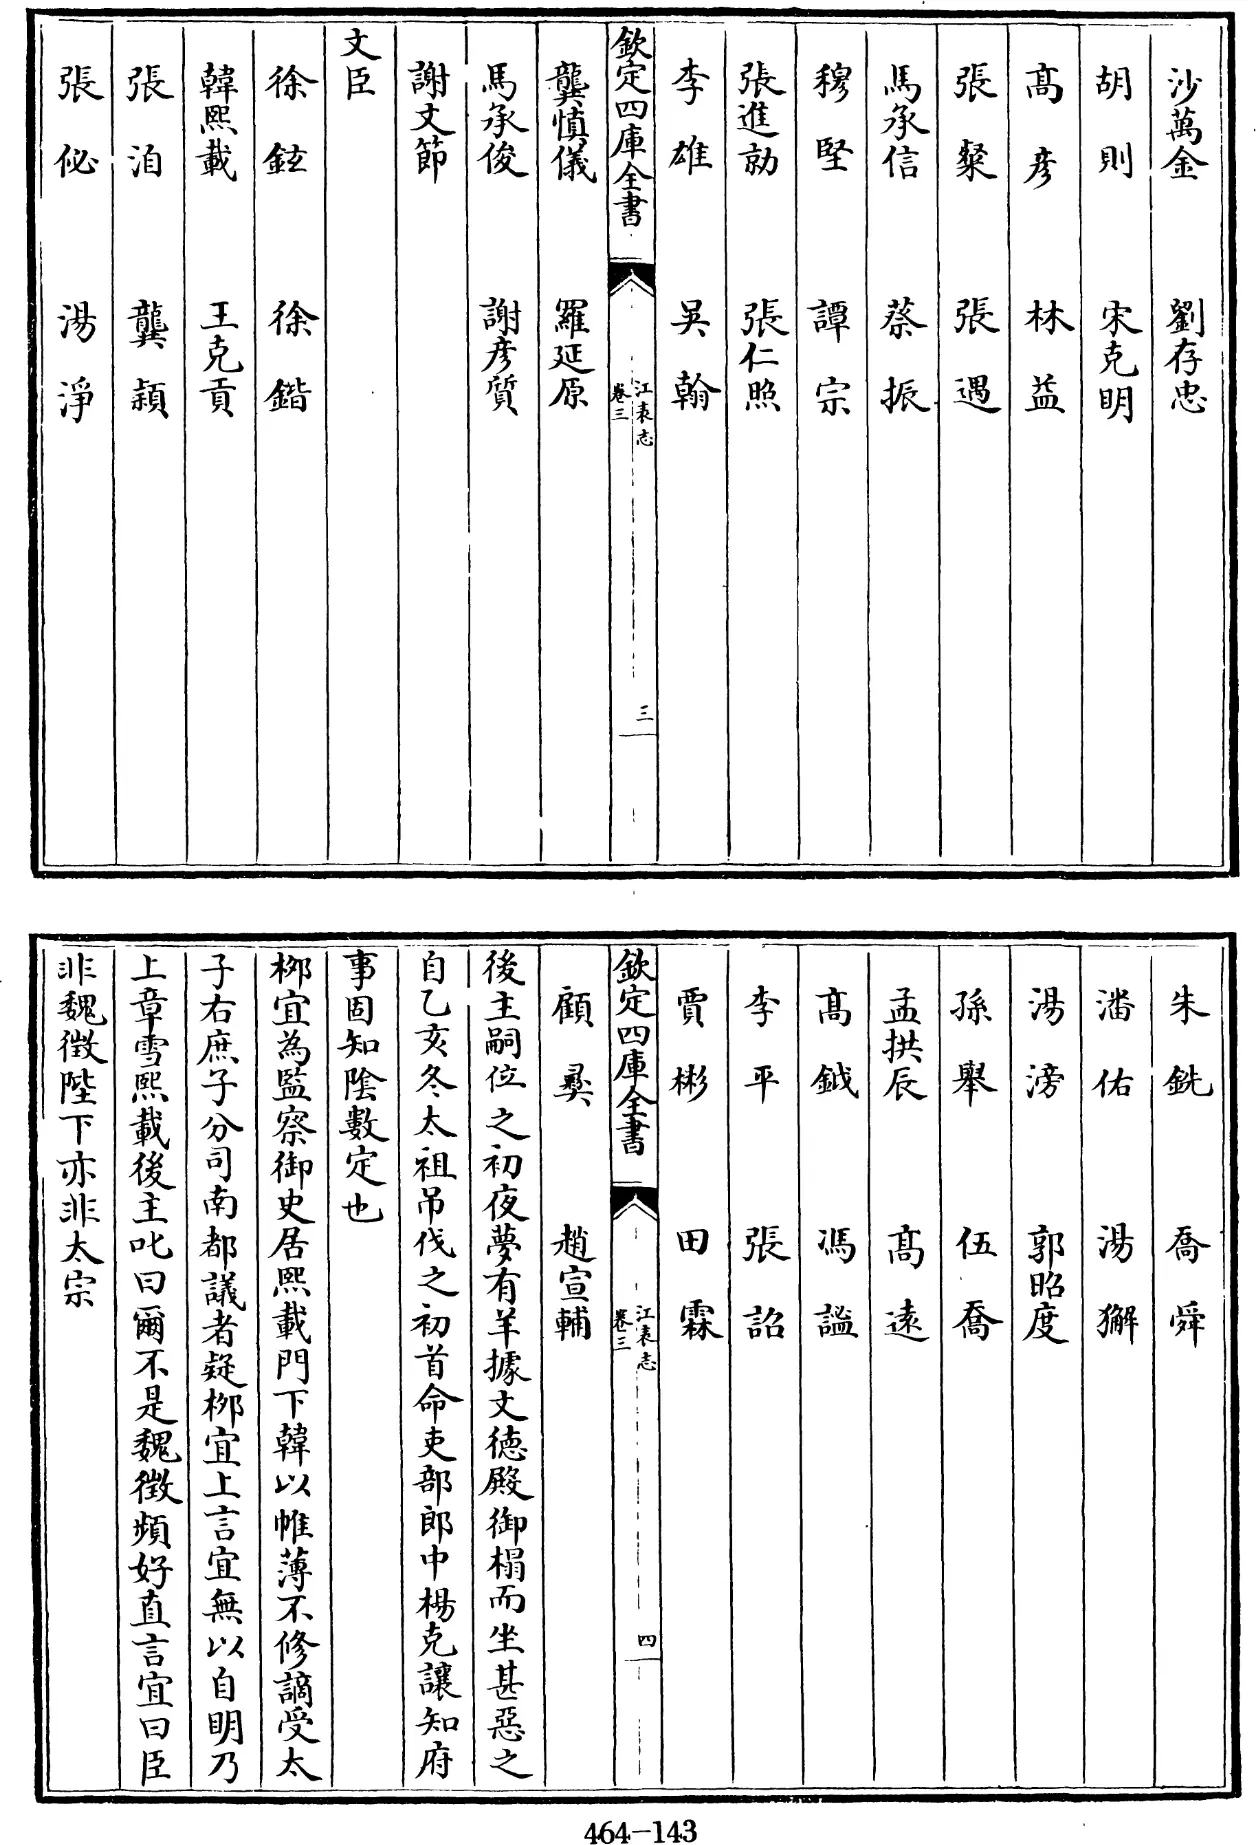 沙萬金　劉存忠
胡則　宋克明
髙彦　林益
張粲　張遇
馬承信　蔡振
穆堅　譚宗
張進勍　張仁照
李雄　吳翰
欽定四庫全書　江表志卷三　三
龔慎儀　羅延原
馬承俊　謝彦質
謝文節
文臣
徐鉉　徐鍇
韓熙載　王克貢
張洎　龔穎
張佖　湯淨
朱銑　喬舜
潘佑　湯獬
湯滂　郭昭度
孫舉　伍喬
孟拱辰　髙遠
髙鉞　馮謐
李平　張詔
賈彬　田霖
欽定四庫全書　江表志卷三　四
顧彛　趙宣輔
後主嗣位之初夜夢有羊據文德殿御榻而坐甚惡之
自乙亥冬太祖吊伐之初首命吏部郎中楊克讓知府
事固知陰數定也
栁宜為監察御史居熙載門下韓以帷薄不修謫受太
子右庶子分司南都議者疑栁宜上言宜無以自明乃
上章雪熙載後主叱曰爾不是魏徵頻好直言宜曰臣
非魏徵陛下亦非太宗
464-143